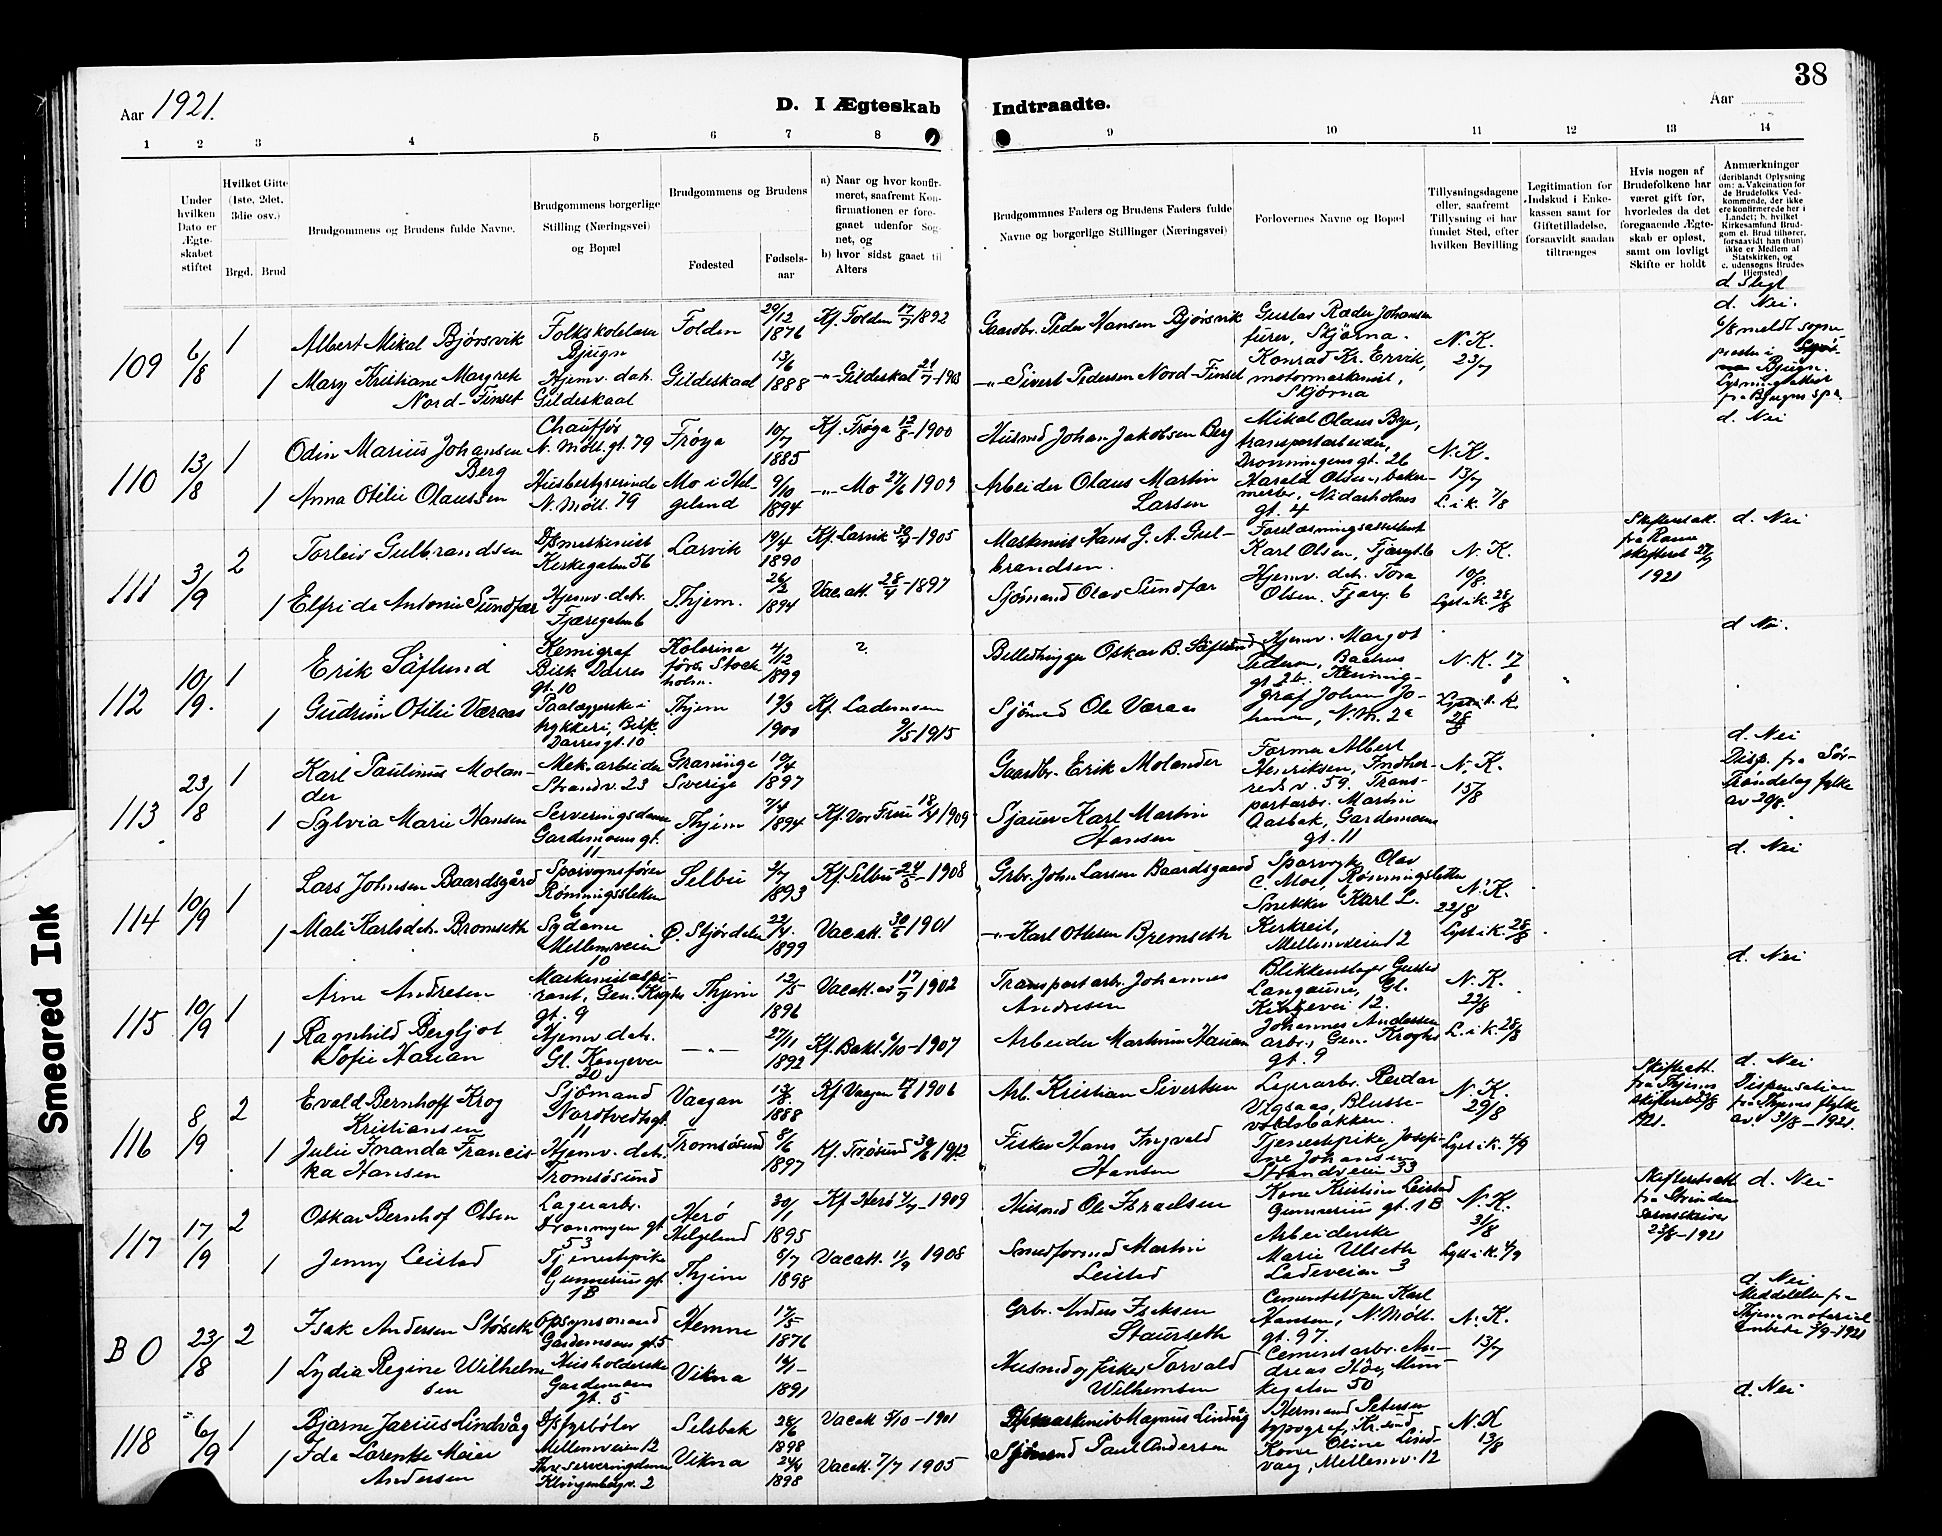 38
Aar 1921.
D. I Ægteskab Indtraadte.
Aar
1 2 3 4 5 6 7 8 9 10 11 12 13 14
Under hvilken Dato er Ægteskabet stiftet
Hvilket Gifte (1ste, 2det, 3die osv.)
Brgd. Brud
Brudgommens og Brudens fulde Navne.
Brudgommens borgerlige Stilling (Næringsvei) og Bopæl
Brudgommens og Brudens
Fødested
Fødselsaar
a) Naar og hvor konfirmeret, saafremt Konfirmationen er foregaaet udenfor Sognet, og
b) hvor sidst gaaet til Alters
Brudgommnes Faders og Brudens Faders fulde Navne og borgerlige Stillinger (Næringsvei)
Forlovernes Navne og Bopæl
Tillysningsdagene eller, saafremt Tillysning ei har fundet Sted, efter hvilken Bevilling
Legitimation for Indskud i Enkekassen samt for Giftetilladelse, forsaavidt saadan tiltrænges
Hvis nogen af Brudefolkene har været gift før, hvorledes da det foregaaende Ægteskab er opløst, samt om lovligt Skifte er holdt
Anmærkninger (deriblandt Oplysning om: a. Vakcination for de Brudefolks Vedkommende, der ikke ere konfirmerede her i Landet; b. hvilket Kirkesamfund Brudgom el. Brud tilhører, forsaavidt han (hun) ikke er Medlem af Statskirken, og c. udensogns Brudes Hjemsted)
109 6/8 1 Albert Mikal Bjørsvik
Bjugn
Folden
29/12 1876
Kf. Folden 17/7 1892
Gaardbr. Peder Hansen Bjørsvik
Gustav Ræder Johansen
Skjørna.
N. K. 23/7
d. Slegt
d. Nei.
1 Mary Kristiane Margrete
Nord-Finset
Hjemv. dat.
Gildeskaal
Gildeskaal
13/6 1888
-"- Gildeskal 21/7-1903
-"- Sivert Pedersen Nord-Finset
Konrad Kr. Ervik,
motormaskinist,
Skjørna
110 13/8 1 Odin Marius Johansen
Berg
Chauffør
N. Möll. gt. 79
Frøya
10/7 1885
Kf. Frøya 12/8-1900
Husmd Johan Jakobsen Berg
Mikal Olaus Bye,
transportarbeider,
Dronningens gt. 26
N. K. 13/7
d. Nei
1 Anna Otilie Olaussen
Husbestyrerinde
N. Möll. 79
Mo i Helgeland
9/10 1894
-"- Mo 27/6 1909
Arbeider Olaus Martin
Larsen
Harald Olsen, bakermester, Nidarholms
gt. 4
L. i k. 7/8
111 3/9 2 Torleiv Gulbrandsen
Dpsmaskinist
Kirkegaten 56
Larvik
19/4 1890
Kf. Larvik 30/4-1905
Maskinist Hans G. A. Gulbrandsen.
Karl Olsen, Fjæregt. 6
N. K. 10/8.
Skifteratt.
fra Ranne
skifteret 27/7
1921
d. Nei
1 Elfrida Antonie Sundfær
Hjemv. dat.
Fjæregaten 6
Thjem.
26/2 1894
Vac. att. 28/4-1897
Sjømand Olav Sundfær
Hjemv. dat. Tora
Olsen. Fjæreg. 6
Lyst i k. 28/8
112 10/9. 1 Erik Säflund
Kemigraf
Bisk Darres
gt. 10
Stockholm.
4/12 1899
?
Billedhugger Oskar B. Säflund
Hjemv. Margot
N. K. 17/8
d. Nei.
1 Gudrun Otilie Væraas
Paalæggerske i
trykkeri, Bisk.
Darres gt. 10
Thjem
19/3 1900
Kf. Lademoen
9/5 1915
Sjömd Ole Væraas
N. M. 2a
28/8
113 23/8 1 Karl Paulinus Molander
Mek. arbeider
Strandv. 23
Graninge
Sverige
10/4 1897
Gaardbr. Erik Molander
Former Albert
Henriksen, Indherreds v. 59.
N. K. 15/8
d. Nei
Disp. fra Sör-
Tröndelag fylke
av 20/8.
1 Sylvia Marie Hansen
Serveringsdame
Gardemoens gt.
11
Thjem
7/4 1894
Kf. Vor Frue 18/4 1909
Sjauer Karl Martin
Hansen
Transportarb. Martin
Aasbak, Gardemoens
gt. 11
114 10/9 1 Lars Johnsen Baardsgård
Sporvognsfører
Rønningsletten
6
Selbu
2/7 1893
Kf. Selbu 24/5-1908
Grbr. John Larsen Baardsgaard
Sporvogk. Olav
C. Moe, Rønningsletten
N. K. 22/8
d. Nei
1 Mali Karlsdat. Bromseth
Sydame
Mellemveien
10
Ø. Stjørdalen
22/4. 1899
Vac att. 30/6 1901
-"- Karl Ottesen Bremseth
Snekker Karl L.
Mellemveien 12
Lyst i k. 28/8
115 10/9 1 Arne Andresen
Maskinistaspirant, Gen. Kroghs
gt. 9
Thjem
12/5 1896
Vac att. av 17/7 1902
Transportarb. Johannes
Andresen
Blikkenslager Gustav
Langaune, Gl.
Kongevei 12.
N. K. 22/8
d. Nei
1 Ragnhild Bergljot
Sofie Harian
Hjemv. dat.
Gl. Kongevei
20
-"-
27/11 1892
Kf. Bakl. 6/10-1907
Arbeider Martinus Harian
Johannes Andersen
arb., Gen. Kroghs
gt. 9
L. i k. 28/8
116 8/9 2 Evald Bernhoff Krog
Kristiansen
Sjömand
Nordtvedtsgt.
11
Vaagan
12/8. 1888
Kf Vaagan 1906
Arb. Kristian Sivertsen
Lagerarb. Reidar
Vigsaas, Blussevoldsbakken.
N. K. 29/8
Skifteatt.
fra Thjems
1921.
d. Nei
Dispensation
fra Thjems fylke
av 31/8-1921.
1 Julie Amanda Franciska Hansen
Hjemv. dat.
Tromsøsund
Tromsøsund
8/6 1897
Kf. Trøsund 30/6 1912
Fisker Hans Ingvald
Hansen
Tjenestepike Josefine Johansen
Strandveien 33
Lyst i k. 4/9
117 17/9 2 Oskar Bernhof Olsen
Lagerarb.
Dronningen gt.
53
Herø
Helgeland
30/1 1895
Kf Herö 4/7-1909
Husmd Ole Israelsen
Kone Kristine Leistad
Gunnerius gt. 1B
N. K. 31/8
Skifteratt
fra Strinden
sorenskriver
23/8-1921
d. Nei
1 Jenny Leistad
Tjenestepike
Gunnerius gt.
1B
Thjem
6/7 1898
Vac att. 11/9 1908
Smedformd Martin
Leistad
Arbeiderske
Marie Ulseth
Ladeveien 3
Lyst i k. 4/9
BO 23/8 2 Isak Andersen Störseth
Opsynsmand
Gardemoens gt 5
Hemne
17/5 1876
Grbr. Anders Isaksen
Staurseth
Cementstöper Karl
Hansen, N. Möll.
gt. 97.
N. K. 13/7
d. Nei
Meddelelse fra
Thjem notarial
embede 3/9-1921
1 Lydia Regine Wilhelmsen
Husholderske
Gardemoens
gt. 5
Vikna
14/1- 1891
Husmd og fisker Torvald
Wilhemsen
Cementarb. Andreas Hoe, Munkegaten 50
118 6/9 1 Bjarne Jarius Lindvåg
Dpsfyrböter
Mellemveien 12
Selsbak
28/6 1898
Vac att 5/10-1901
Dpsmaskinist Magnus Lindvåg
Herman Petersen
typograf, Kr.sund
N. K 13/8
d. Nei
1 Ida Lorentse Meier
Andersen
Klingenbergv. 2
Vikna
24/4 1898
Vac att. 7/7 1905
Sjömand Paul Andersen
Kone Oline Lindvaag, Mellemv. 12
Smeared Ink